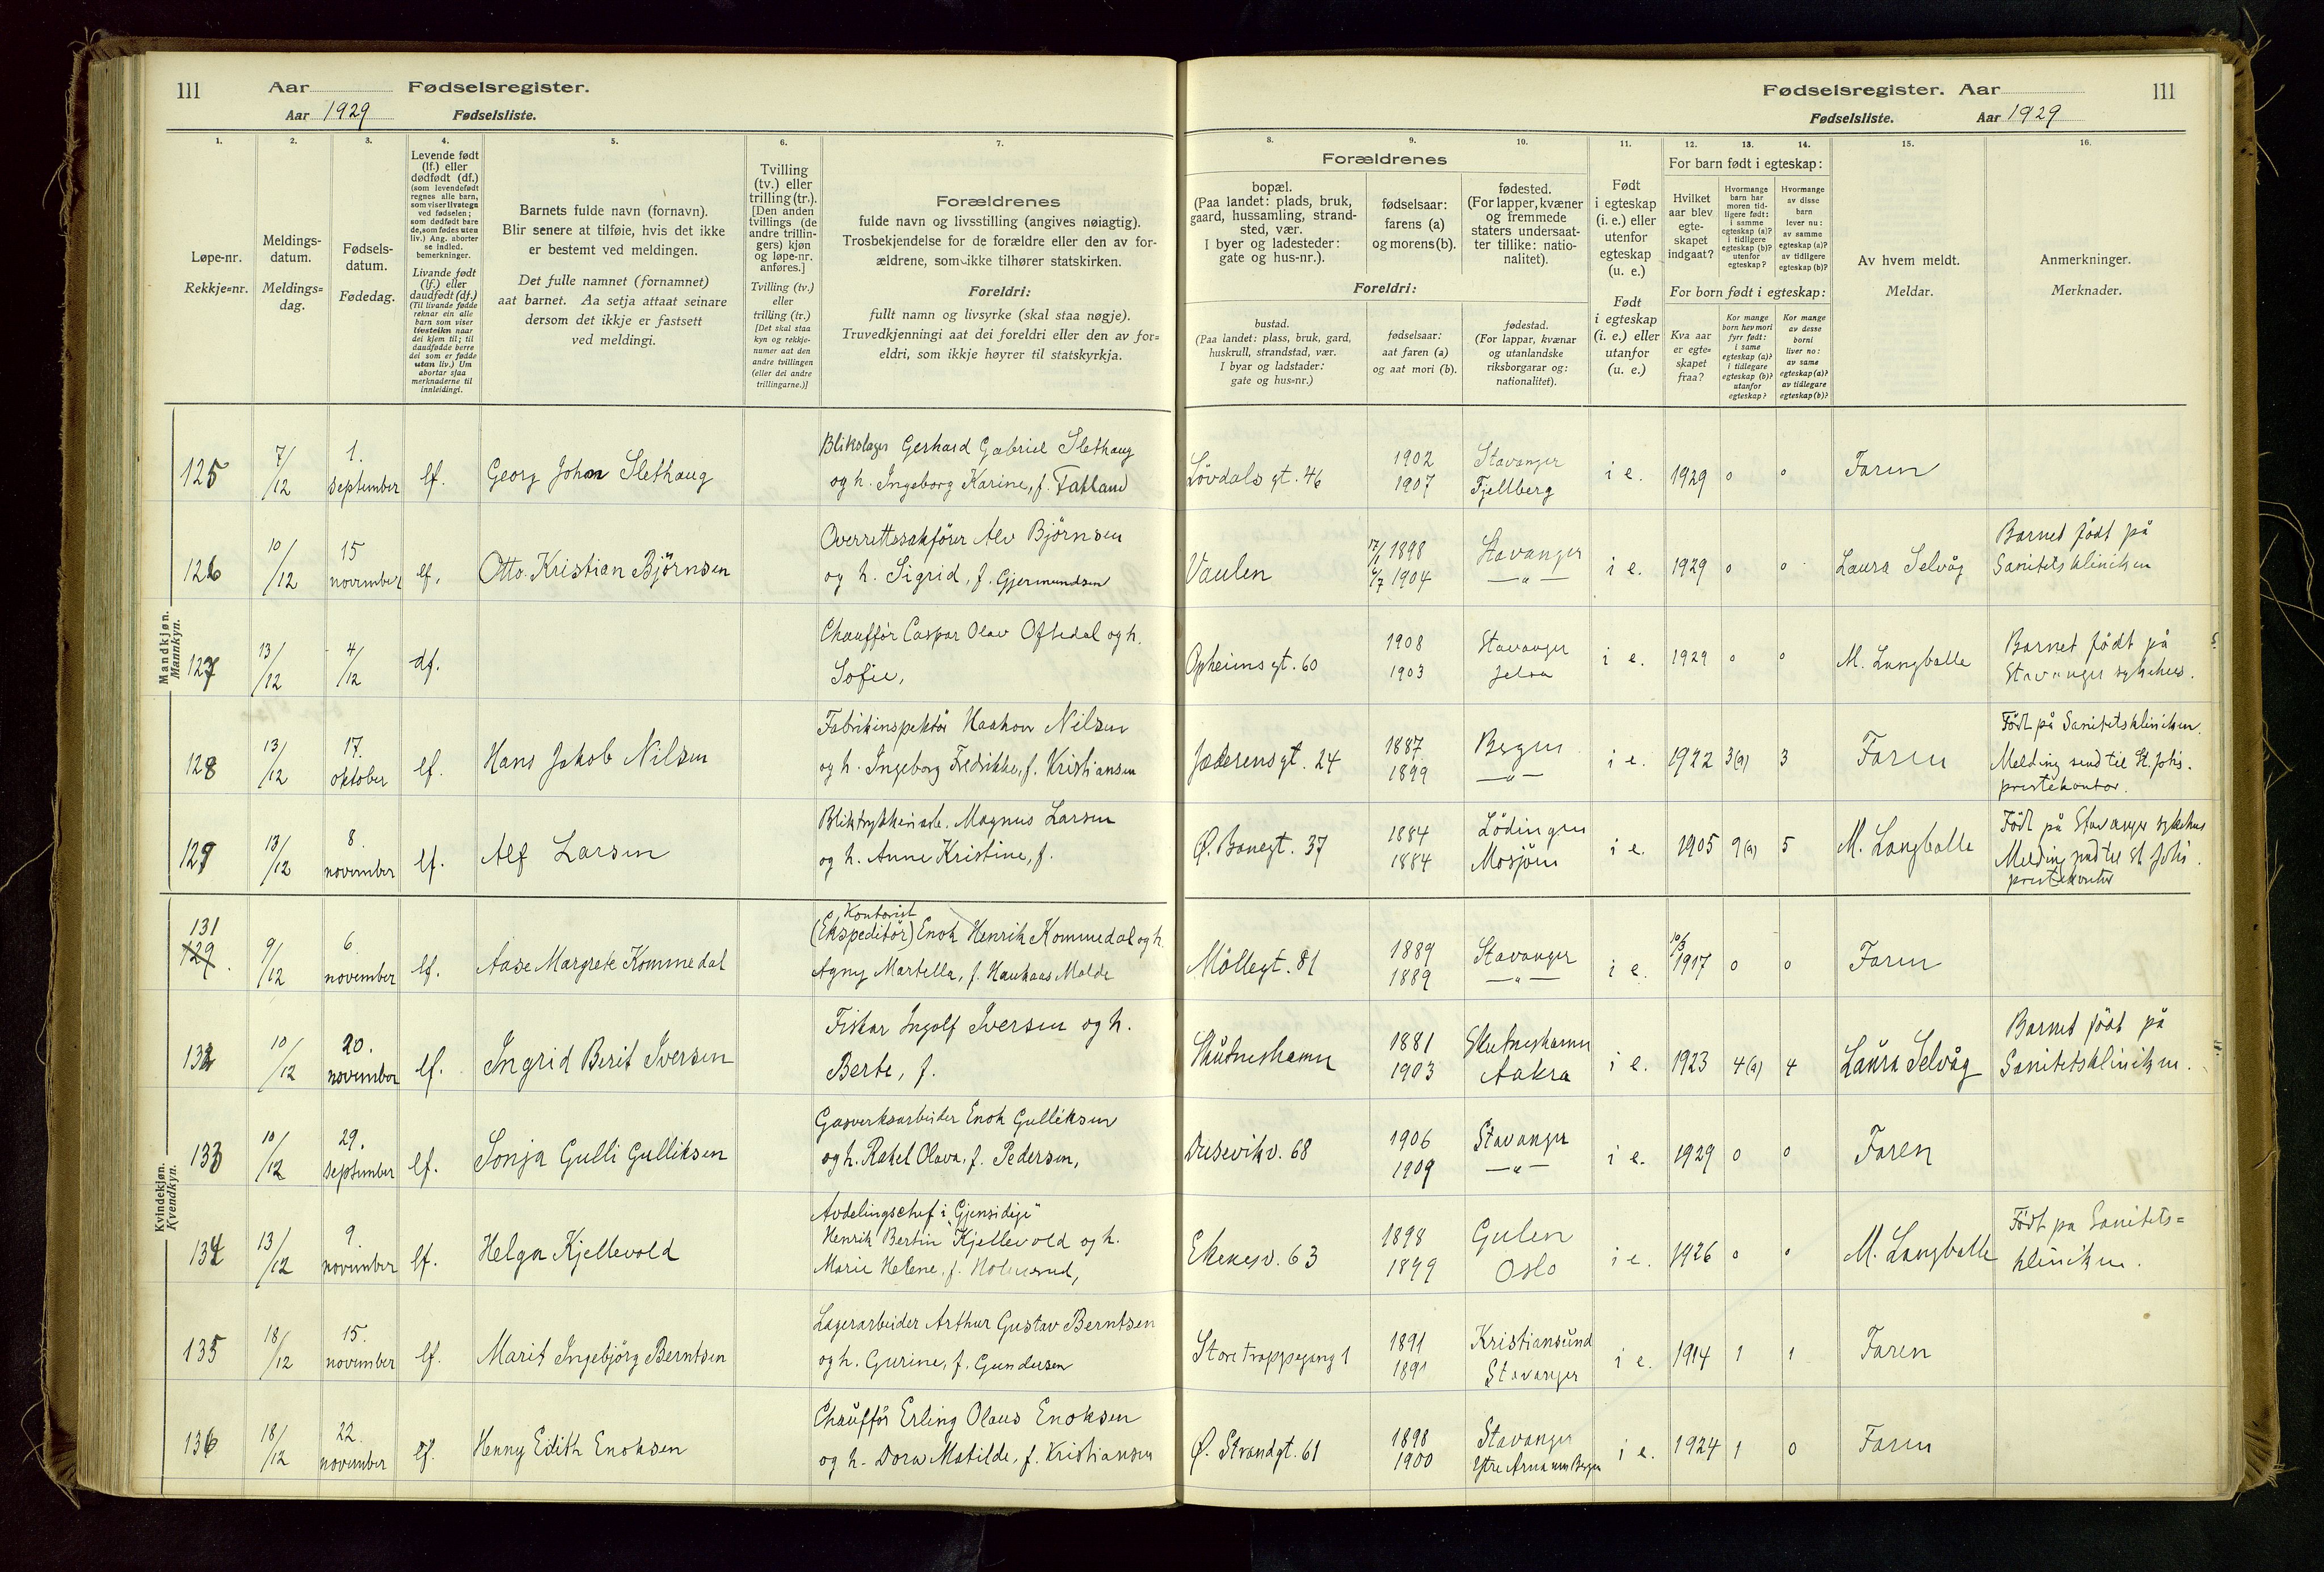 111 Aar Fødselsregister.
Aar 1929 Fødselsliste.
Fødselsregister. Aar 111
Fødselsliste. Aar 1929
1. 2. 3. 4. 5. 6. 7. 8. 9. 10. 11. 12. 13. 14. 15. 16.
Løpe-nr.
Rekkje=nr.
Meldings-
datum.
Meldings=
dag.
Fødsels-
datum.
Fødedag.
Levende født
(lf.) eller
dødfødt (df.)
(som levendefødt
regnes alle barn,
som viser livstegn
ved fødselen;
som dødfødt bare
de, som fødes uten
liv.) Ang. aborter
se indled.
bemerkninger.
Livande født
(lf.) eller
daudfødt (df.)
(Til livande fødde
reknar ein alle
born som viser
livsteikn naar
dei kjem til; til
daudfødde berre
dei som er fødde
utan liv.) Um
abortar sjaa
merknaderne til
innleidingi.
Barnets fulde navn (fornavn).
Blir senere at tilføie, hvis det ikke
er bestemt ved meldingen.
Det fulle namnet (fornamnet)
aat barnet. Aa setja attaat seinare
dersom det ikkje er fastsett
ved meldingi.
Tvilling
(tv.) eller
trilling (tr.).
[Den anden
tvillings (de
andre trillin-
gers) kjøn
og løpe-nr.
anføres.]
Tvilling (tv.)
eller
trilling (tr.)
[Det skal staa
kyn og rekkje-
numer aat den
andre tvillingen
(eller dei andre
trillingarne.)]
Forældrenes
fulde navn og livsstilling (angives nøiagtig).
Trosbekjendelse for de forældre eller den av for-
ældrene, som ikke tilhører statskirken.
Foreldri:
fullt namn og livsyrke (skal staa nøgje).
Truvedkjenningi aat dei foreldri eller den av for=
eldri, som ikkje høyrer til statskyrkja.
Forældrenes
bopæl.
(Paa landet: plads, bruk,
gaard, hussamling, strand-
sted, vær.
I byer og ladesteder:
gate og hus-nr.).
fødselsaar:
farens (a)
og morens (b).
fødested.
(For lapper, kvæner
og fremmede
staters undersaat-
ter tillike: natio-
nalitet).
Foreldri:
bustad.
(Paa landet: plass, bruk, gard,
huskrull, strandstad, vær.
I byar og ladstader:
gate og hus-nr.)
fødselsaar:
aat faren (a)
og aat mori (b).
fødestad.
(For lappar, kvænar
og utanlandske
riksborgarar og:
nationalitet).
Født
i egteskap
(i. e.) eller
utenfor
egteskap
(u. e.)
Født
i egteskap
(i. e.) eller
utanfor
egteskap
(u. e.)
For barn født i egteskap:
Hvilket
aar blev
egte-
skapet
indgaat?
Hvormange
barn har
moren tid-
ligere født:
i samme
egteskap (a)?
i tidligere
egteskap (b)?
utenfor
egteskap?
Hvormange
av disse
barn
lever nu:
av samme
egteskap (a)?
av tidligere
egteskap (b)?
For born født i egteskap:
Kva aar
er egte=
skapet
fraa?
Kor mange
born hev mori
fyrr født:
i same
egteskap (a)?
i tidlegare
egteskap (b)?
utanfor
egteskap?
Kor mange
av desse
borni
liver no:
av same
egteskap (a)?
av tidlegare
egteskap (b)?
Av hvem meldt.
Meldar.
Anmerkninger.
Merknader.
Mandkjøn.
Mannkyn.
125 7/12 1. september lf. Georg Johan Slethaug
Blikslager Gerhard Gabriel Slethaug
og h. Ingeborg Karine, f. Fatland
Lövdals gt. 46 1902 1907 Stavanger Fjellberg i e. 1929 0 0 Faren
126 10/12 15 november lf. Otto Kristian Björnsen
Overrettssakfører Alv Björnsen
og h. Sigrid, f. Gjermundsen
Vaulen 17/1 1898 4/7 1904 Stavanger —"— i e. 1929 0 0 Laura Selvåg
Barnet født på
Sanitetskliniken
127 13/12 4/12 df.
Chaufför Caspar Olav Oftedal og h.
Sofie,
Opheimsgt. 60 1908 1903 Stavanger Jelsa i e. 1929 0 0 M. Langballe
Barnet födt på
Stavanger sykehus.
128 13/12 17. oktober lf. Hans Jakob Nilsen
Fabrikinspektör Haakon Nilsen
og h. Ingeborg Fredrikke, f. Kristiansen
Jæderensgt. 24 1887 1899 Bergen —"— i e. 1922 3(a) 3 Faren
Födt på Sanitetskliniken.
Melding send til St. Johs.
prestekontor.
129 13/12 8. november lf. Alf Larsen
Bliktrykkeriarb. Magnus Larsen
og h. Anne Kristine, f.
Ø. Banegt. 37 1884 1884 Lödingen Mosjöen i e. 1905 9(a) 5 M. Langballe
Födt på Stavanger sykehus
Melding send til St Johs.
prestekontor
Kvindekjøn.
Kvendkyn.
131
129. 9/12 6. november lf. Aase Margrete Kommedal
Kontorist
(Ekspeditör) Enok Henrik Kommedal og h.
Agny Martella, f. Haukaas Molde
Möllegt. 81 1889 1889 Stavanger —"— i e. 10/3 1917 0 0 Faren
132 10/12 20. november lf. Ingrid Berit Iversen
Fisker Ingolf Iversen og h.
Berte, f.
Skutneshamn 1881 1903 Skutneshamn Aakra i e. 1923 4(a) 4 Laura Selvåg
Barnet födt på
Sanitetskliniken.
133 10/12 29. september lf. Sonja Gulli Gulliksen
Gasverksarbeider Enok Gulliksen
og h. Rakel Olava, f. Pedersen,
Dusevikv. 68 1906 1909 Stavanger —"— i e. 1929 0 0 Faren
134 13/12 9. november lf. Helga Kjellevold
Avdelingschef i "Gjensidige"
Henrik Bertin Kjellevold og h.
Marie Helene, f. Holmsrud,
Ekenesv. 63 1898 1899 Gulen Oslo i e. 1926 0 0 M. Langballe
Födt pa Sanitets=
kliniken.
135 18/12 15. november lf. Marit Ingebjörg Berntsen
Lagerarbeider Arthur Gustav Berntsen
og h. Gurine, f. Gundersen
Store trappegang 1 1891 1891 Kristiansund Stavanger i e. 1914 1 1 Faren
136 18/12 22. november lf. Henny Edith Enoksen
Chaufför Erling Olaus Enoksen
og h. Dora Matilde, f. Kristiansen
Ø. Strandgt. 61 1898 1900 Stavanger Ytre Arna um Bergen i e. 1924 1 0 Faren